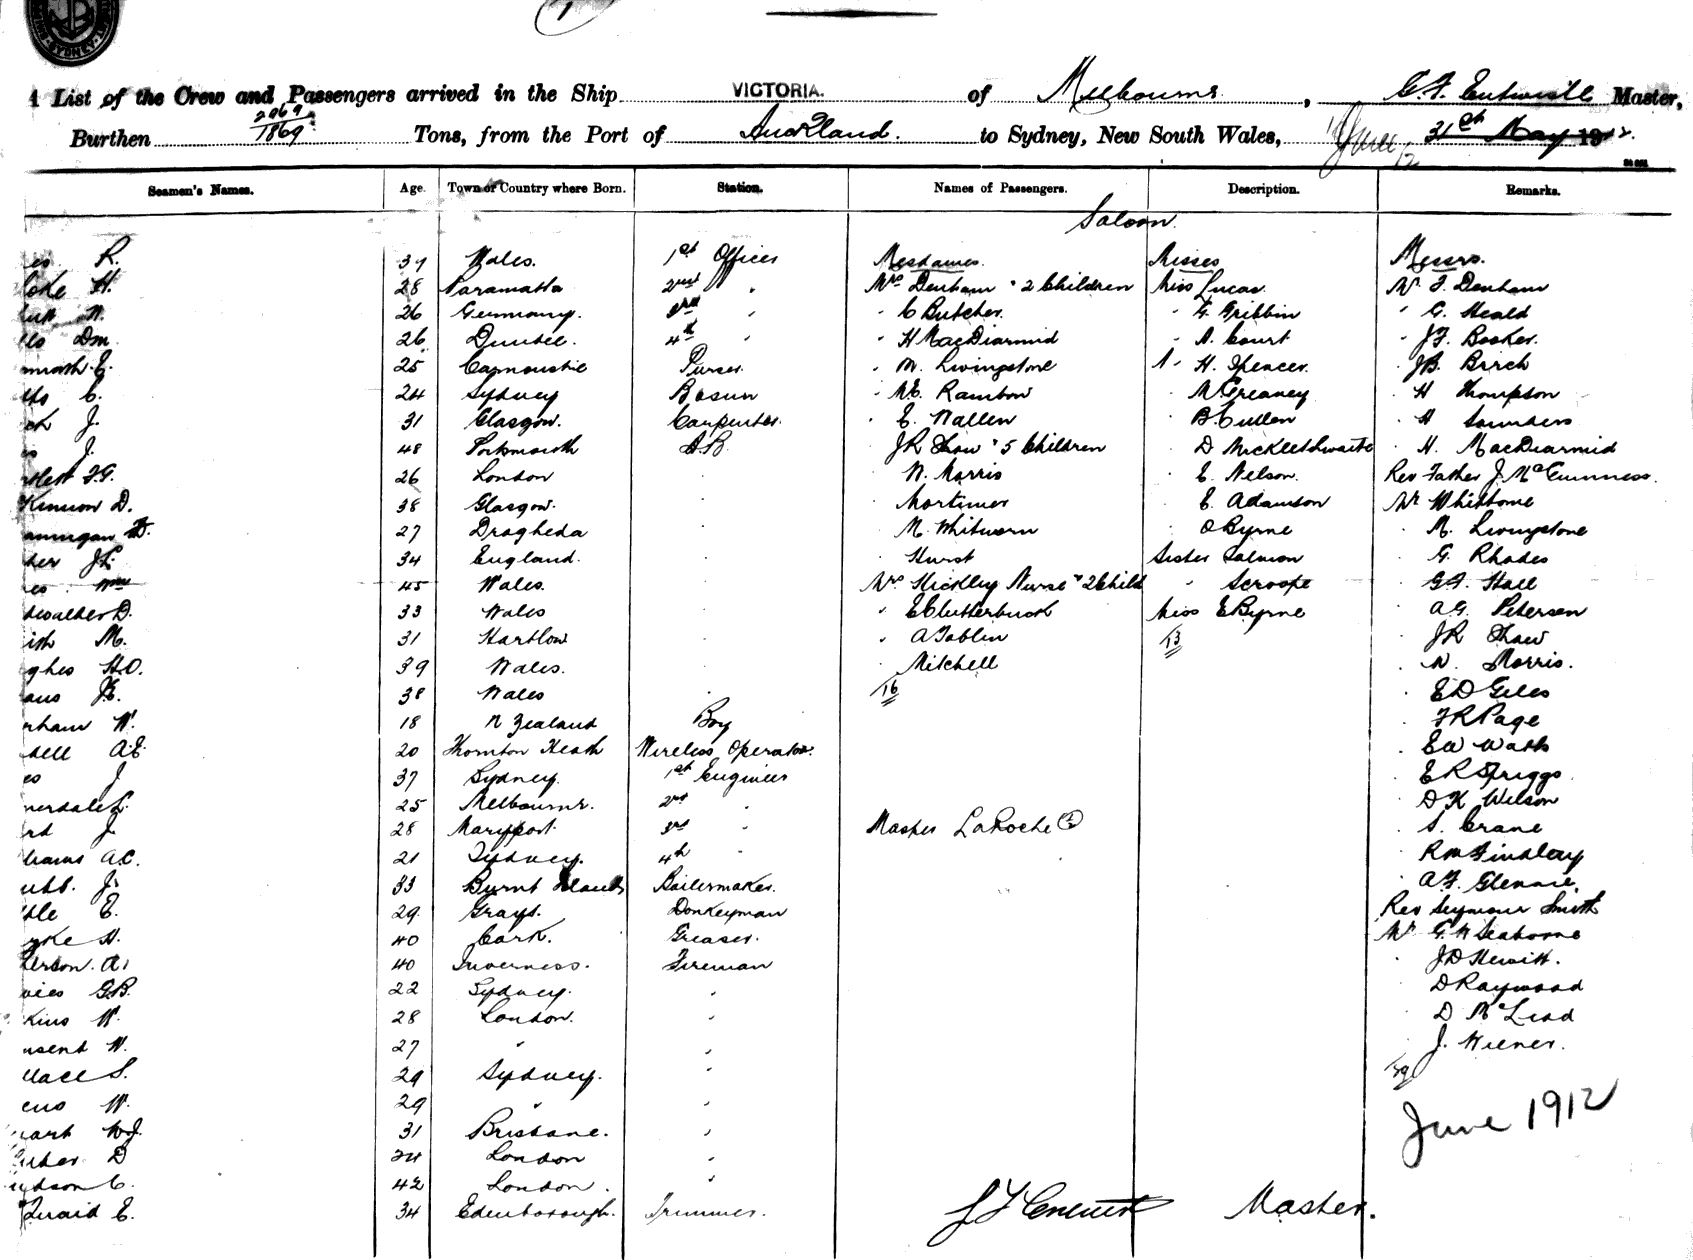 SYDNEY
1
List of the Crew and Passengers arrived in the Ship VICTORIA. of Melbourne, Master,
Burthen 2969 / 1869 Tons, from the Port of Auckland. to Sydney, New South Wales, 1 June 12 31st May 1912.
Seamen's Names. Age. Town or Country where Born. Station. Names of Passengers. Description. Remarks.
Saloon
es R. 37 Wales. 1st Officer Mesdames. Misses Messrs.
H. 28 Paramatta 2nd " Mrs Denham " 2 Children Miss Lucas. Mr F. Denham
W. 26 Germany. 3rd " " C Butcher. " G. Gribbin " G. Heald
Dm. 26 Dundee. 4th " " H MacDiarmid " A. Court " J.F. Booker.
E. 25 Carnoustie Purser. " M. Livingstone " H. Spencer. " J.B. Birch
C. 24 Sydney Bosun " W.E. Rambow " M Greaney " H Thompson
J. 31 Glasgow. Carpenter. " E. Wallen " B. Cullen " H Saunders
J. 48 Portsmouth A.B. " J.R. Shaw " 5 Children " D Micklethwaite " H. MacDiarmid
F.G. 26 London " " W. Morris " E. Nelson. Rev Father J. McGuinness.
Kinnon D. 38 Glasgow. " " Mortimer " E. Adamson Mr Whitbome
annigan 27 Drogheda " " M. Whitworn " O Byrne " M. Livingstone
her 34 England. " " Hurst Sister Salmon " G. Rhodes
es Wm 45 Wales. " Mrs Hickley Nurse " 2 Child " Scroope " G.F. Hall
dwallader D. 33 Wales " " E Clutterbuck Miss E Byrne " A.G. Petersen
ith M. 31 Harlow " " A Joblin 13 " J R Shaw
ghes H.O. 39 Wales. " " Mitchell " W. Morris.
ans 38 Wales " 16 " E D Giles
rham W. 18 N Zealand Boy " F R Page
dell A.E. 20 Thornton Heath Wireless Operator. " E W Watts
es J 37 Sydney. 1st Engineer " E R Spriggs
nerdale 25 Melbourne. 2nd " " D K Wilson
rd J. 28 Maryport. 3rd " Master La Roche 1 " S. Crane
liams A.C. 21 Sydney. 4th " " R M Findlay
ubb. J. 33 Burnt Islands Boilermaker. " A.F. Glennie.
ble E. 29. Grays. Donkeyman Rev Seymour Smith
yke H. 40 Cork. Greaser. Mr G. H Seaborne
erson. A. 40 Inverness. Fireman " J D Hewitt.
vies G.B. 22 Sydney. " " D Raywood
kins W. 28 London. " " D McLeod
nsent W. 27 " " " J. Wiener.
llace S. 29 Sydney. " 29
ens W. 29 " " June 1912
uart W.J. 31 Brisbane. "
D 24 London "
udson C. 42 London. "
Quaid E. 34 Edenborough. Trimmer. Master.